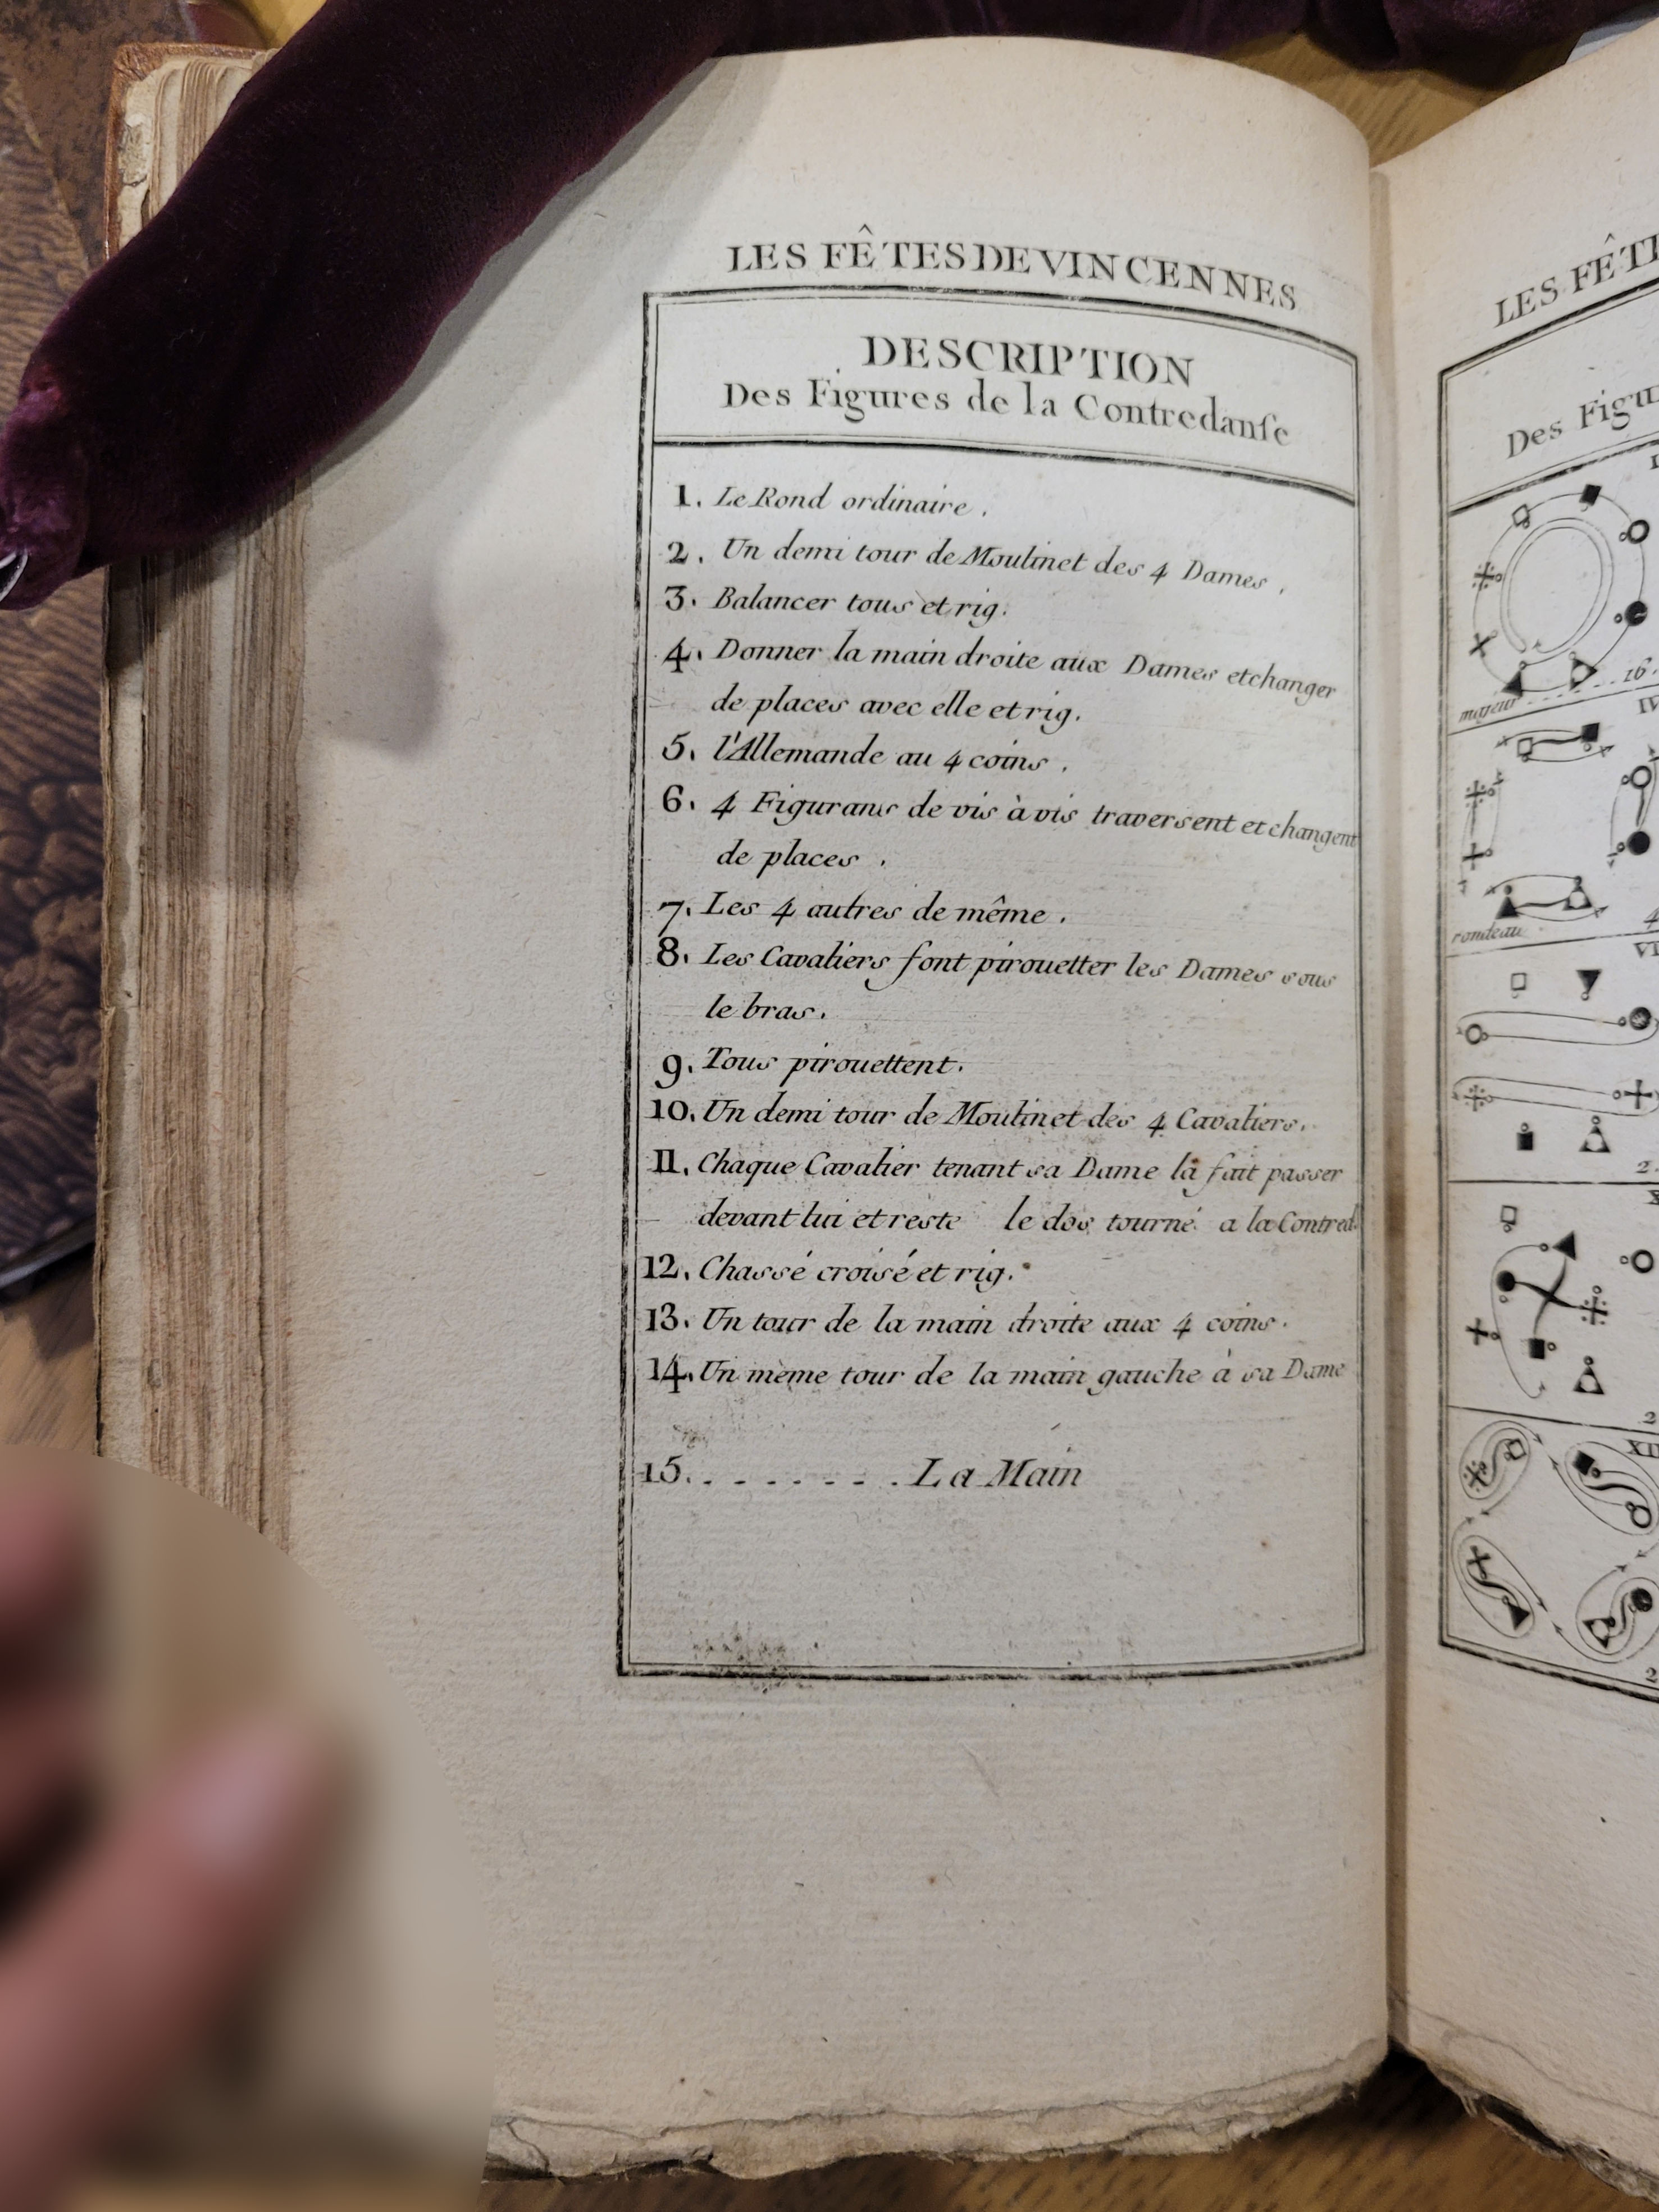 LES FÊTES DE VINCENNES
DESCRIPTION
Des Figures de la Contredanſe
1. Le Rond ordinaire.
2. Un demi tour de Moulinet des 4 Dames.
3. Balancer tous et rig.
4. Donner la main droite aux Dames et changer
de places avec elle et rig.
5. l'Allemande au 4 coins.
6. 4 Figurans de vis à vis traversent et changent
de places.
7. Les 4 autres de même.
8. Les Cavaliers font pirouetter les Dames sous
le bras.
9. Tous pirouettent.
10. Un demi tour de Moulinet des 4 Cavaliers.
11. Chaque Cavalier tenant sa Dame la fait passer
devant lui et reste le dos tourné a la Contred.
12. Chassé croisé et rig.
13. Un tour de la main droite aux 4 coins.
14. Un même tour de la main gauche à sa Dame
15. . . . . . . . . La Main
LES FÊT
Des Figu
majeur 16.
IV
rondeau 4
VI
2.
X
2
XII
2